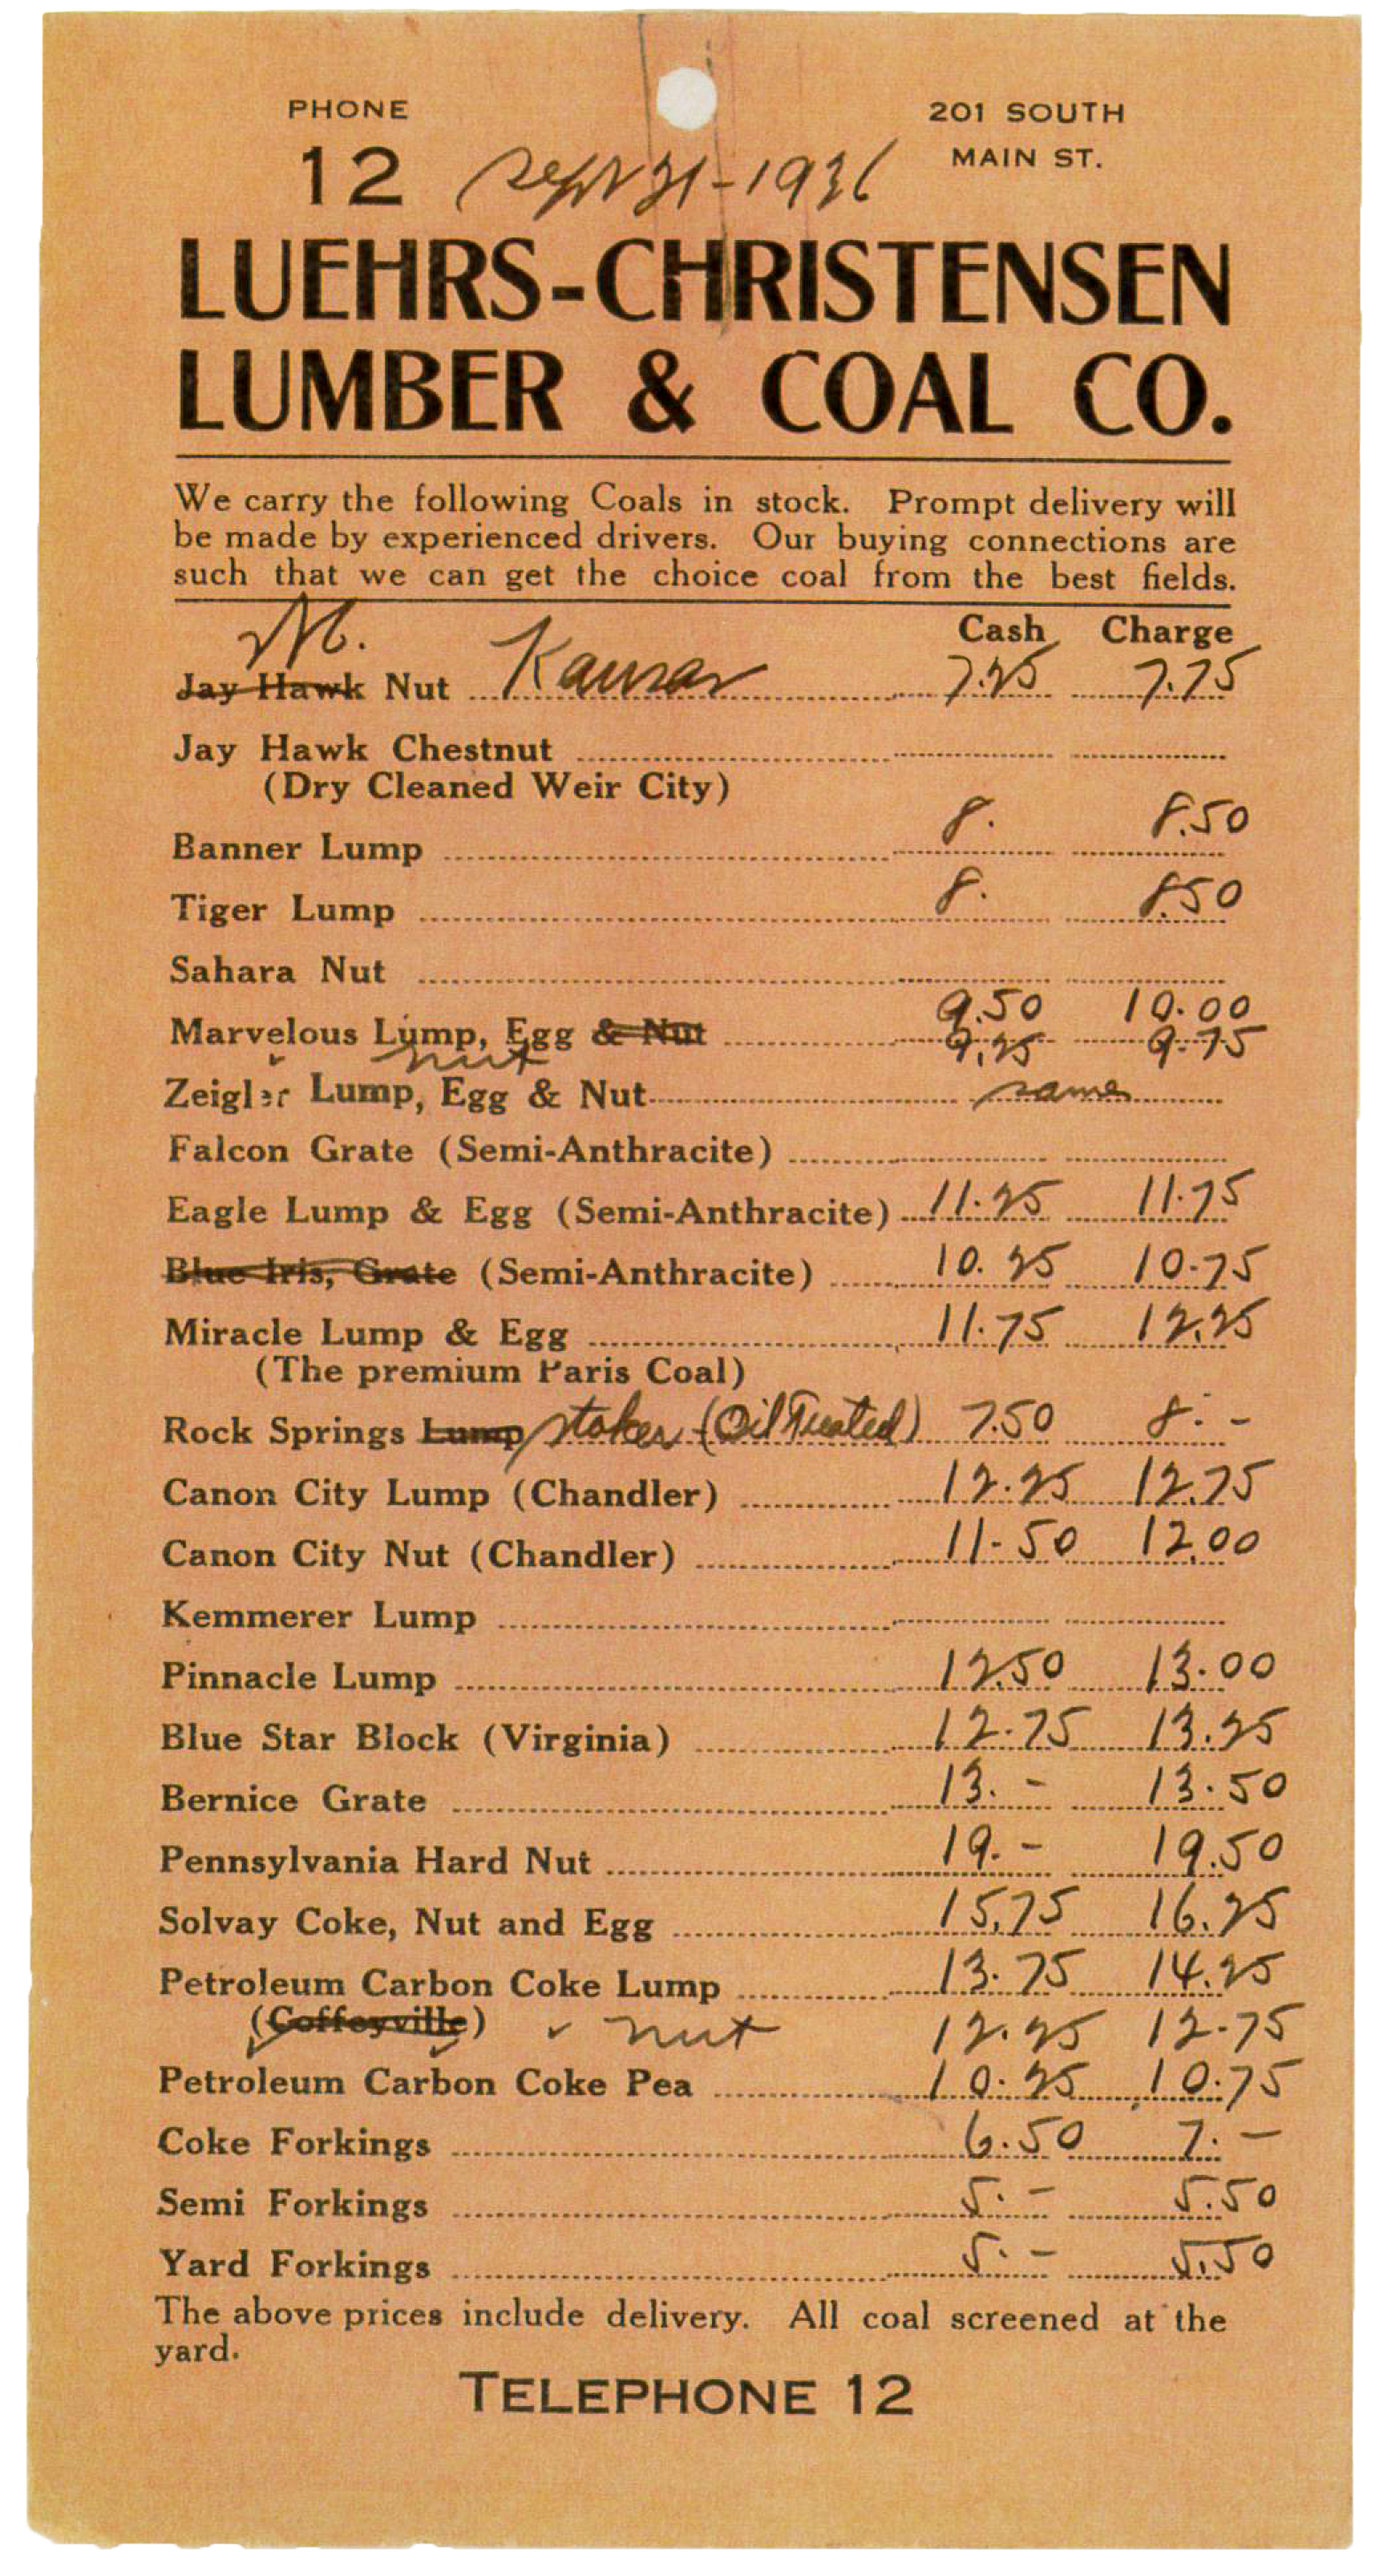 PHONE
201 SOUTH
MAIN ST.
12
Sept 21-1936
LUEHRS-CHRISTENSEN
LUMBER & COAL CO.
We carry the following Coals in stock. Prompt delivery will
be made by experienced drivers. Our buying connections are
such that we can get the choice coal from the best fields.
Cash Charge
Jay Hawk Nut Kansas 7.25 7.75
Jay Hawk Chestnut
(Dry Cleaned Weir City)
Banner Lump 8. 8.50
Tiger Lump 8. 8.50
Sahara Nut
9.50 10.00
Marvelous Lump, Egg & Nut 9.25 9.75
nut
Zeigler Lump, Egg & Nut same
Falcon Grate (Semi-Anthracite)
Eagle Lump & Egg (Semi-Anthracite) 11.25 11.75
Blue Iris, Grate (Semi-Anthracite) 10.25 10-75
Miracle Lump & Egg 11.75 12.25
(The premium Paris Coal)
Rock Springs Lump stoker (Oil Treated) 7.50 8.-
Canon City Lump (Chandler) 12.25 12.75
Canon City Nut (Chandler) 11-50 12.00
Kemmerer Lump
Pinnacle Lump 12.50 13.00
Blue Star Block (Virginia) 12.75 13.25
Bernice Grate 13.- 13.50
Pennsylvania Hard Nut 19.- 19.50
Solvay Coke, Nut and Egg 15.75 16.25
Petroleum Carbon Coke Lump 13.75 14.25
(Coffeyville) nut 12.25 12-75
Petroleum Carbon Coke Pea 10.25 10.75
Coke Forkings 6.50 7.-
Semi Forkings 5.- 5.50
Yard Forkings 5.- 5.50
The above prices include delivery. All coal screened at the
yard.
TELEPHONE 12